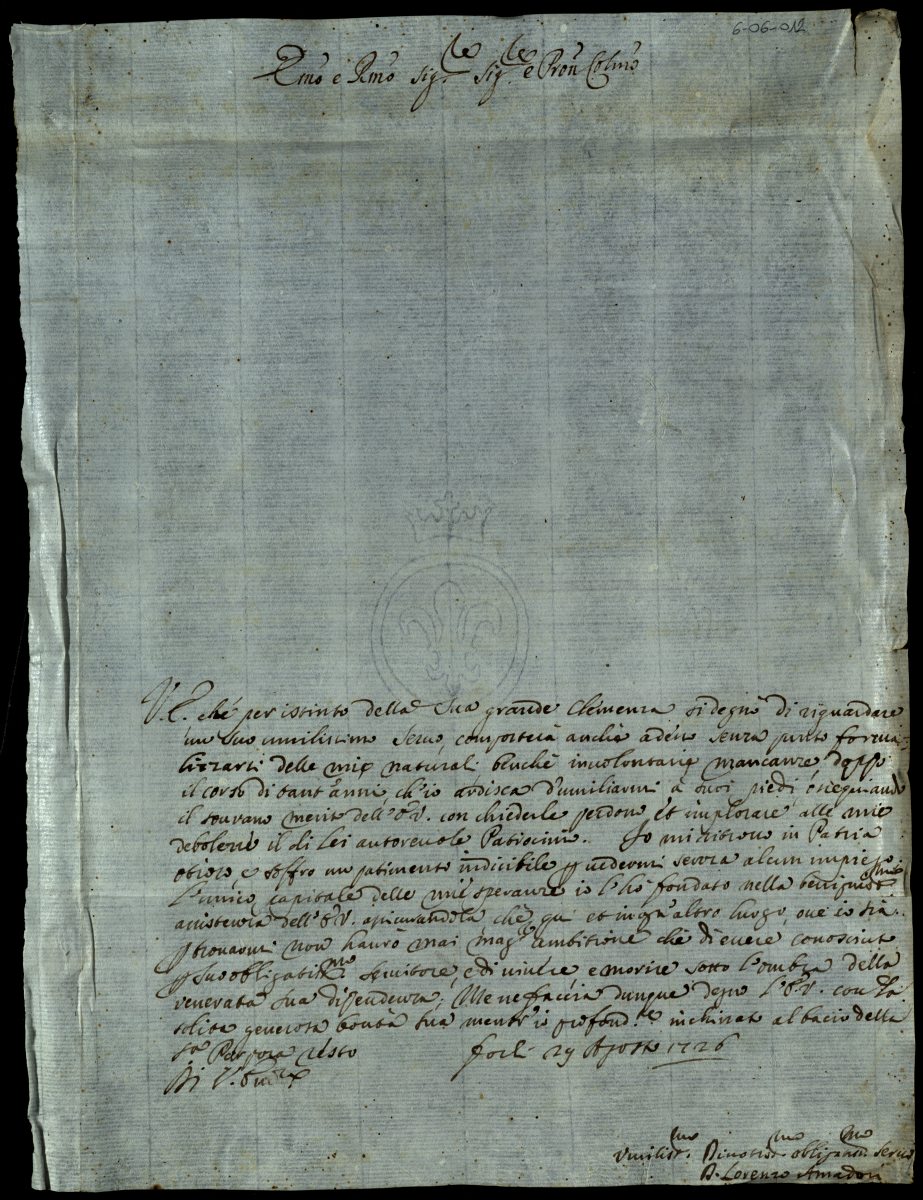 6-06-012
Emo e Rmo Sig.re Sig.re e Pron Colmo
V. E. che per istinto della Sua grande Clemenza si degnò di riguardare
un suo umilissimo servo, comporterà anche adesso senza punto forma-
lizzarsi delle mie naturali, benche involontarie mancanze doppo
il corso di tant'anni, ch'io ardisca d'umiliarmi a suoi piedi, esseguiando
il sourano merito dell'E. V. con chiederle perdono, et implorare alle mie
debolezze il di Lei autoreuole Patrocinio. Io mi ritrouo in Patria
otioso, e soffro un patimento indicibile p uedermi senza alcun impiego.
L'unico capitale delle mie speranze io l'hò fondato nella benignissma
assistenza dell'E. V. assicurandola che, qui et in qn altro luogo, oue io sia
p trouarmi non haurò mai mag.e ambitione che di essere conosciuto
p suo obligatissmo seruitore, e di uiuere, e morire sotto l'ombra della
venerata sua dipendenza; Me ne faccia dunque degno l'E. V. con la
solita generosa bontà sua mentr'io profond.te inchinato al bacio della
Sa Porpora resto
forlì 29 Agosto 1726
Di V. Em.za
Vmilissmo Diuotissmo obligatissmo seruo
D. Lorenzo Amadori